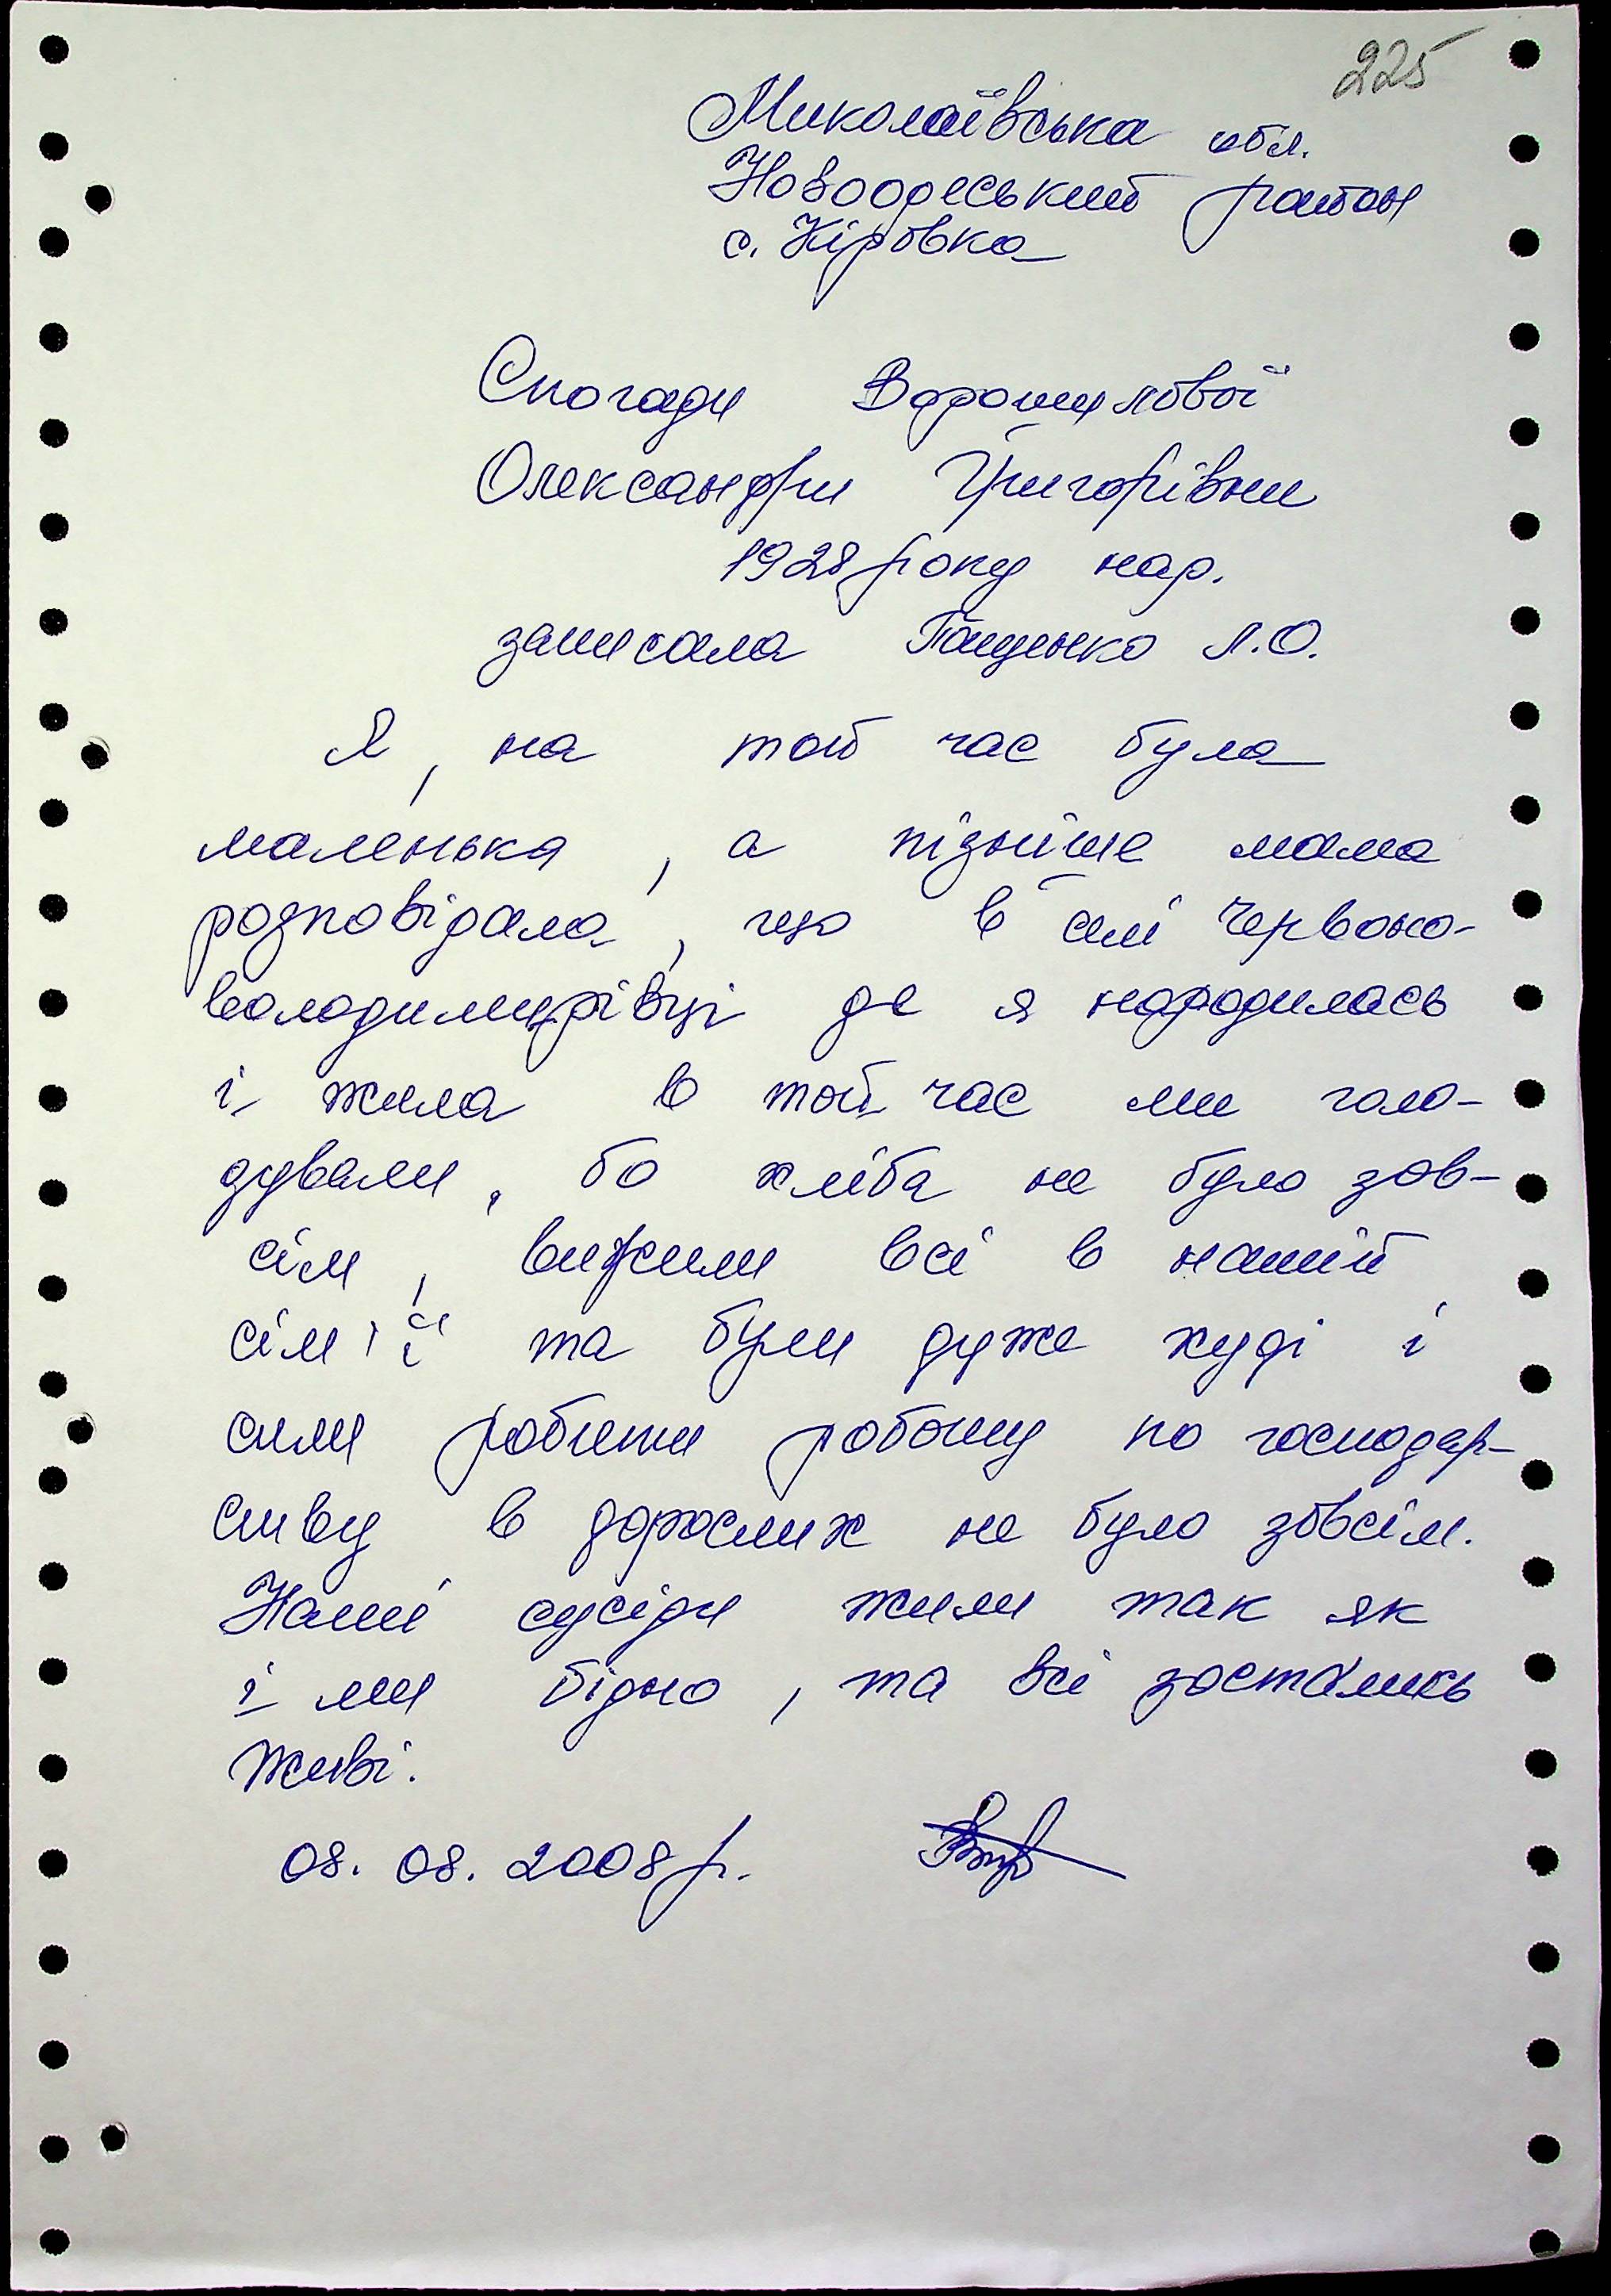 225
Миколаївська обл.
Новоодеський район
с. Кіровка
Спогади Ворошилової
Олександри Григорівни
1928 року нар.
записала Пащенко Л.О.
Я, на той час була
маленька, а пізніше мама
розповідала, що в селі Червоно-
володимирівці де я народилась
і жила в той час ми голо-
дували, бо хліба не було зов-
сім, вижили всі в нашій
сім'ї та були дуже худі і
сили робити роботу по господар-
ству в дорослих не було зовсім.
Наші сусіди жили так як
і ми бідно, та всі зостались
живі.
08. 08. 2008 р.